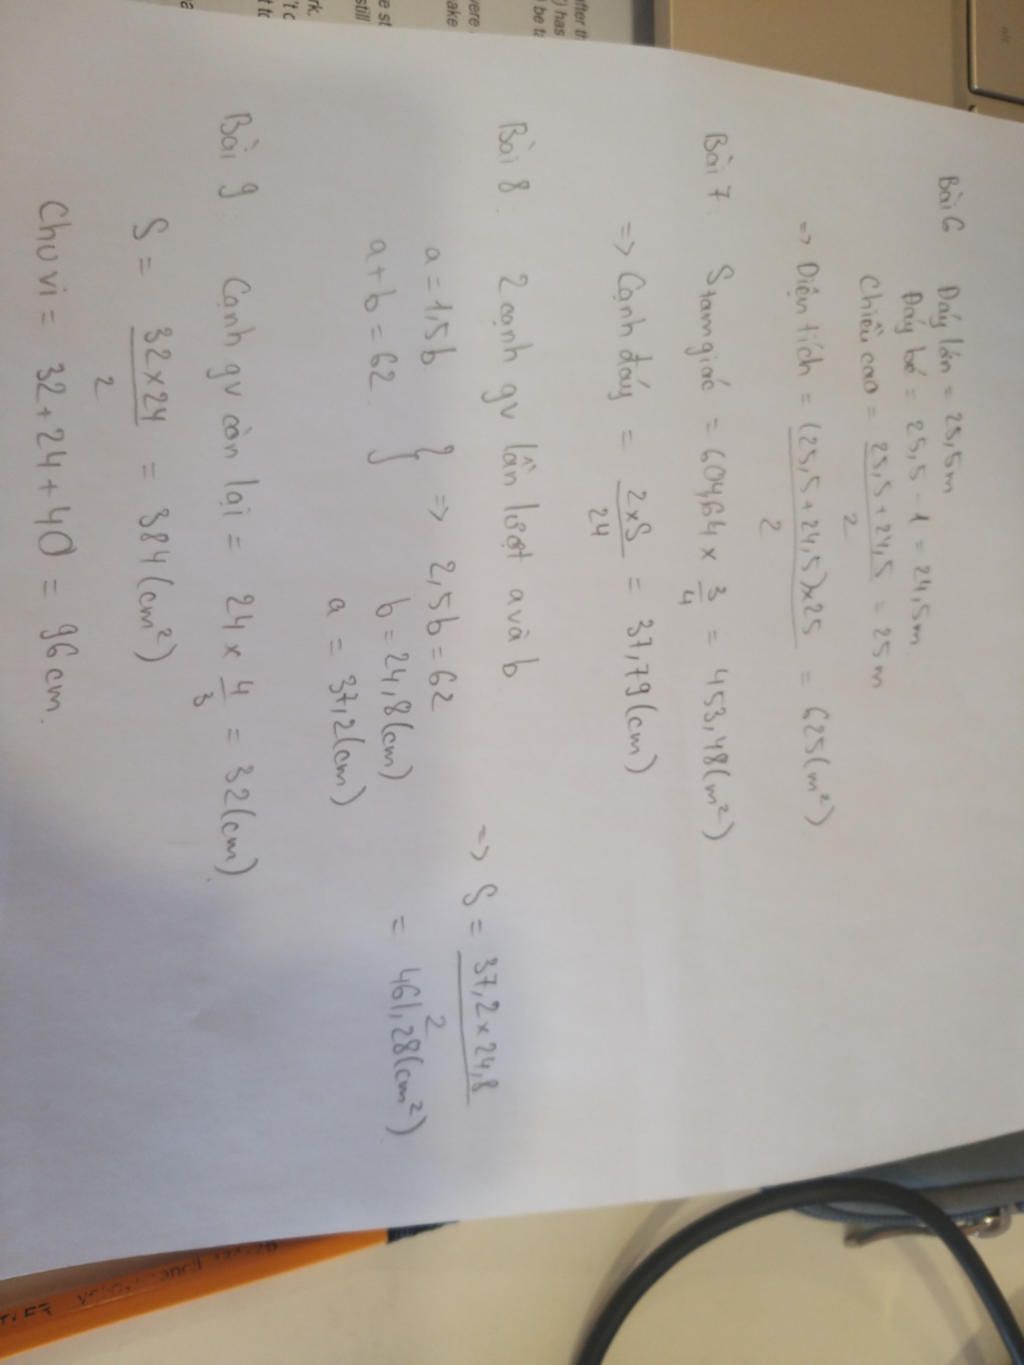 Bài 6 Đáy lớn = 25,5m
Đáy bé = 25,5 - 1 = 24,5m.
Chiều cao = 25,5 + 24,5 / 2 = 25 m
=> Diện tích = (25,5 + 24,5) x 25 / 2 = 625 (m²)
Bài 7. S tam giác = 604,64 x 3/4 = 453,48 (m²)
=> Cạnh đáy = 2xS / 24 = 37,79 (cm)
Bài 8. 2 cạnh gv lần lượt a và b
a = 1,5b
a + b = 62. } => 2,5b = 62
b = 24,8 (cm)
a = 37,2 (cm)
=> S = 37,2 x 24,8 / 2
= 461,28 (cm²)
Bài 9 Cạnh gv còn lại = 24 x 4/3 = 32 (cm).
S = 32x24 / 2 = 384 (cm²)
Chu vi = 32 + 24 + 40 = 96 cm.